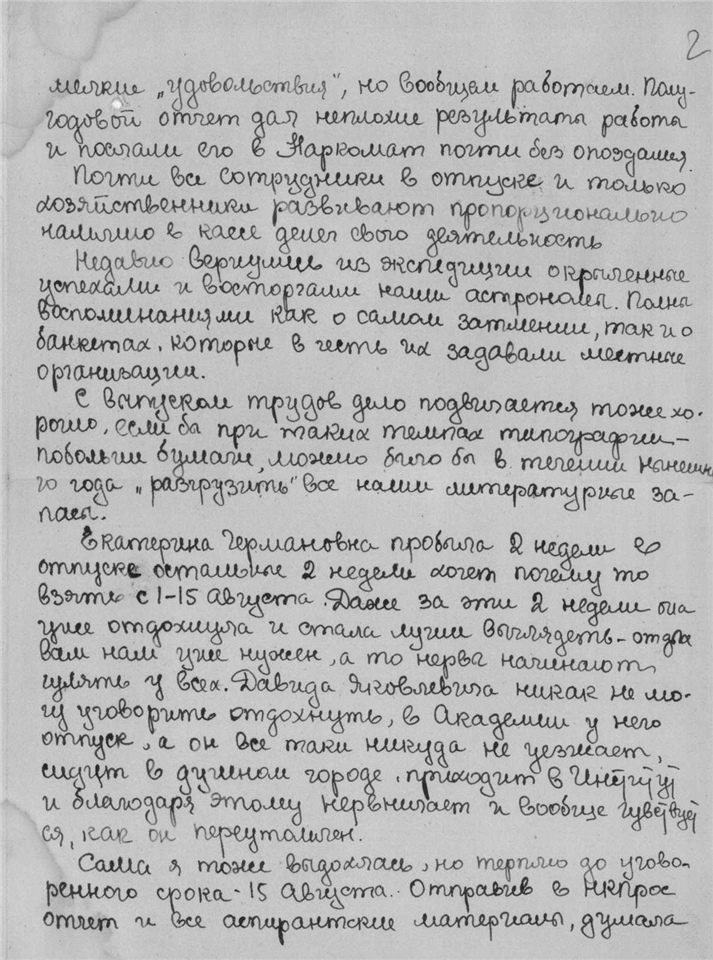 2
мелкие „удовольствия", но вообщем работаем. Полу-
годовой отчет дал неплохие результаты работы
и послали его в Наркомат почти без опоздания.
Почти все сотрудники в отпуске и только
хозяйственники развивают пропорционально
наличию в кассе денег свою деятельность
Недавно вернулись из экспедиции окрыленные
успехами и восторгами наши астрономы. Полны
воспоминаниями как о самом затмении, так и о
банкетах, которые в честь их задавали местные
организации.
С выпуском трудов дело подвигается тоже хо-
рошо, если бы при таких темпах типографии –
побольше бумаги, можно было бы в течении нынешне
го года „разгрузить" все наши литературные за-
пасы.
Екатерина Германовна пробыла 2 недели в
отпуске остальные 2 недели хочет почему то
взять с 1-15 Августа. Даже за эти 2 недели она
уже отдохнула и стала лучше выглядеть – отдых
вам нам уже нужен, а то нервы начинают
гулять у всех. Давида Яковлевича никак не мо-
гу уговорить отдохнуть, в Академии у него
отпуск, а он все таки никуда не уезжает,
сидит в душном городе, приходит в Институт
и благодаря этому нервничает и вообще чувствует
ся, как он переутомлен.
Сама я тоже выдохлась, но терплю до угово-
ренного срока - 15 Августа. Отправив в НКПрос
отчет и все аспирантские материалы, думала